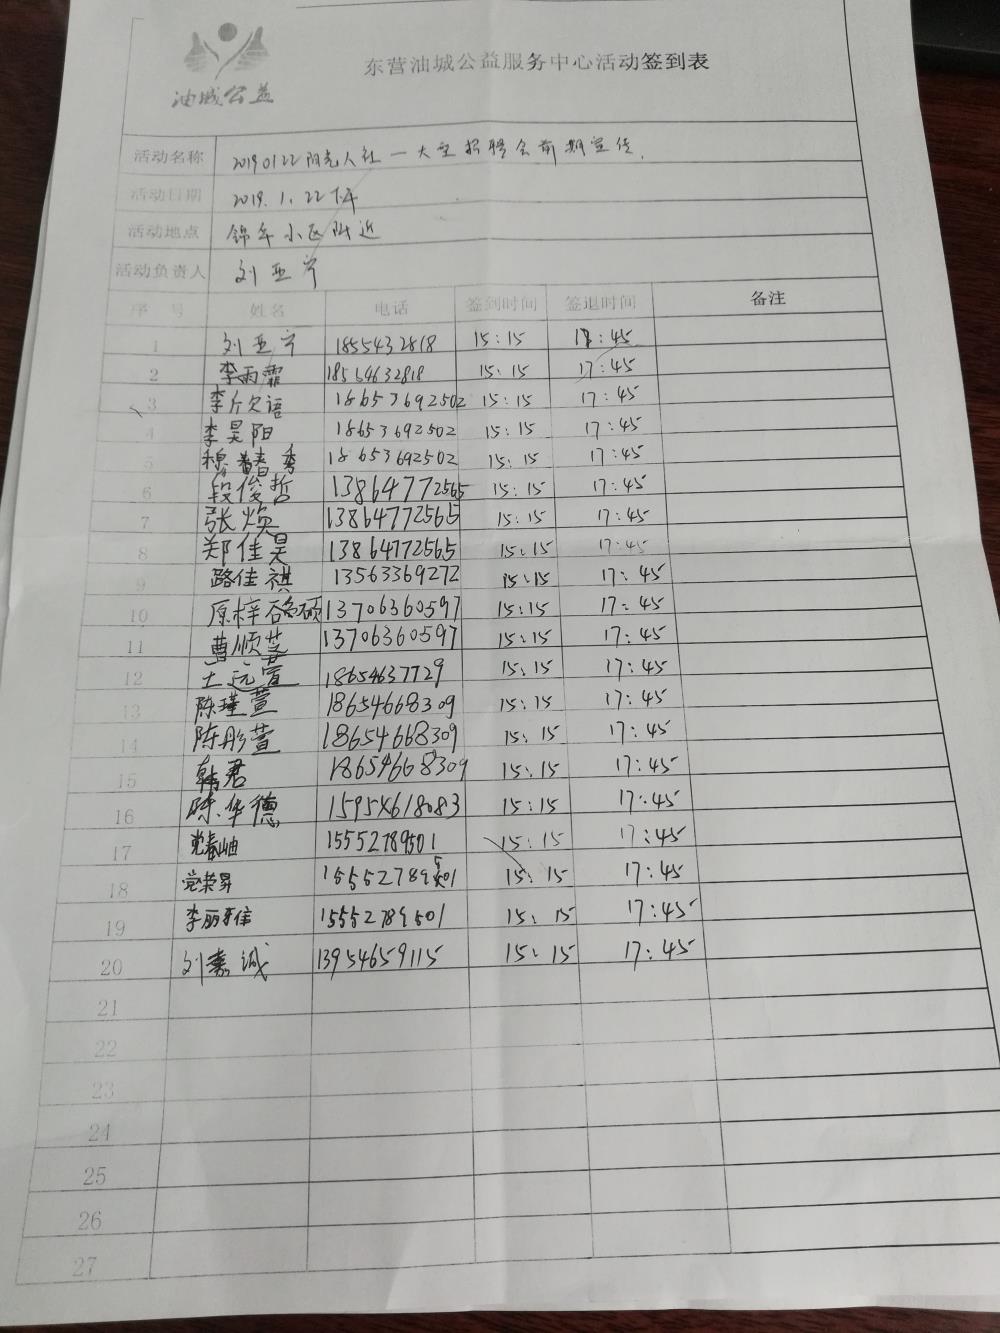 油城公益
东营油城公益服务中心活动签到表
活动名称 20190122阳光人社一大型招聘会前期宣传.
活动日期 2019.1.22下午
活动地点 锦华小区附近
活动负责人 刘亚宁
序 号 姓名 电话 签到时间 签退时间 备注
1 刘亚宁 1855432818 15:15 17:45
2 李雨霏 18564632818 15:15 17:45
3 李 语 18653692502 15:15 17:45
4 李昊阳 18653692502 15:15 17:45
5 穆春秀 18653692502 15:15 17:45
6 段俊哲 13864772565 15:15 17:45
7 张焕 13864772565 15:15 17:45
8 郑佳昊 13864772565 15:15 17:45
9 路佳祺 13563369272 15:15 17:45
10 原梓硕 13706360597 15:15 17:45
11 曹顺芝 13706360597 15:15 17:45
12 王远萱 18654637729 15:15 17:45
13 陈瑾萱 18654668309 15:15 17:45
14 陈彤萱 18654668309 15:15 17:45
15 韩君 18654668309 15:15 17:45
16 陈华德 15954618083 15:15 17:45
17 党春岫 15552789501 15:15 17:45
18 党荣昇 15552789501 15:15 17:45
19 李丽 15552789501 15:15 17:45
20 刘嘉诚 13954659115 15:15 17:45
21
22
23
24
25
26
27